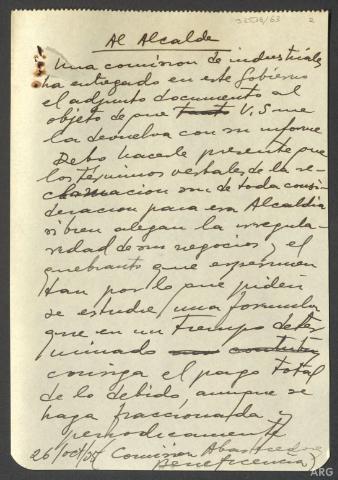 2
Al Alcalde
Una comision de industriales
ha entregado en este Gobierno
el adjunto documento al
objeto de que V.S me
la devuelva con su informe
Debo hacerle presente que
los terminos verbales de la re-
clamacion son de toda consi-
deracion para esa Alcaldia
si bien alegan la irregula-
ridad de sus negocios y el
quebranto que experimen
tan por lo que piden
se estudie una formula
que en un tiempo deter
minado
consiga el pago total
de lo debido, aunque se
haga fraccionada y
periodicamente
26/oct/35 (Comision Abastecedora
Beneficencia)
ARG